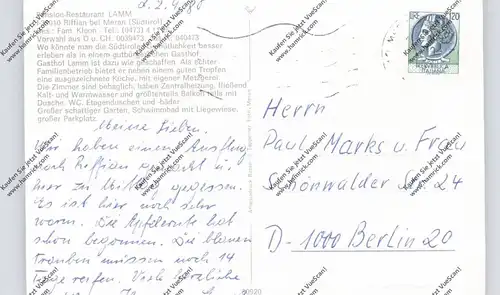 d. 2.9.
Pension-Restaurant LAMM
Riffian bei Meran (Südtirol)
Bes.: Fam. Tel. (0473) 4
Vorwahl aus D u. CH. 0039473, 040473
Wo könnte man die Südtiroler besser
erleben als in einem gutbürgerlichen Gasthof.
Gasthof Lamm ist dazu wie geschaffen. Als echter
Familienbetrieb bietet er neben einem guten Tropfen
eine ausgezeichnete Küche, mit eigener Metzgerei.
Die Zimmer sind behaglich, haben Zentralheizung, fließend
Kalt- und Warmwasser und größtenteils Balkon teils mit
Dusche, WC. Etagenduschen und -bäder
Großer schattiger Garten, Schwimmbad mit Liegewiese,
großer Parkplatz.
Meine Lieben.
Wir haben einen Ausflug
nach Riffian gemacht u.
hier zu Mittag gegessen.
Es ist hier noch sehr
warm. Die Apfelernte hat
schon begonnen. Die blauen
Trauben müssen noch 14
Tage reifen. Viele herzliche
120
Herrn
Paul Marks u. Frau
Schönwalder Str 24
D-1000 Berlin 20
80520
Kaufen Sie jetzt VueScan!
www.hamrick.com